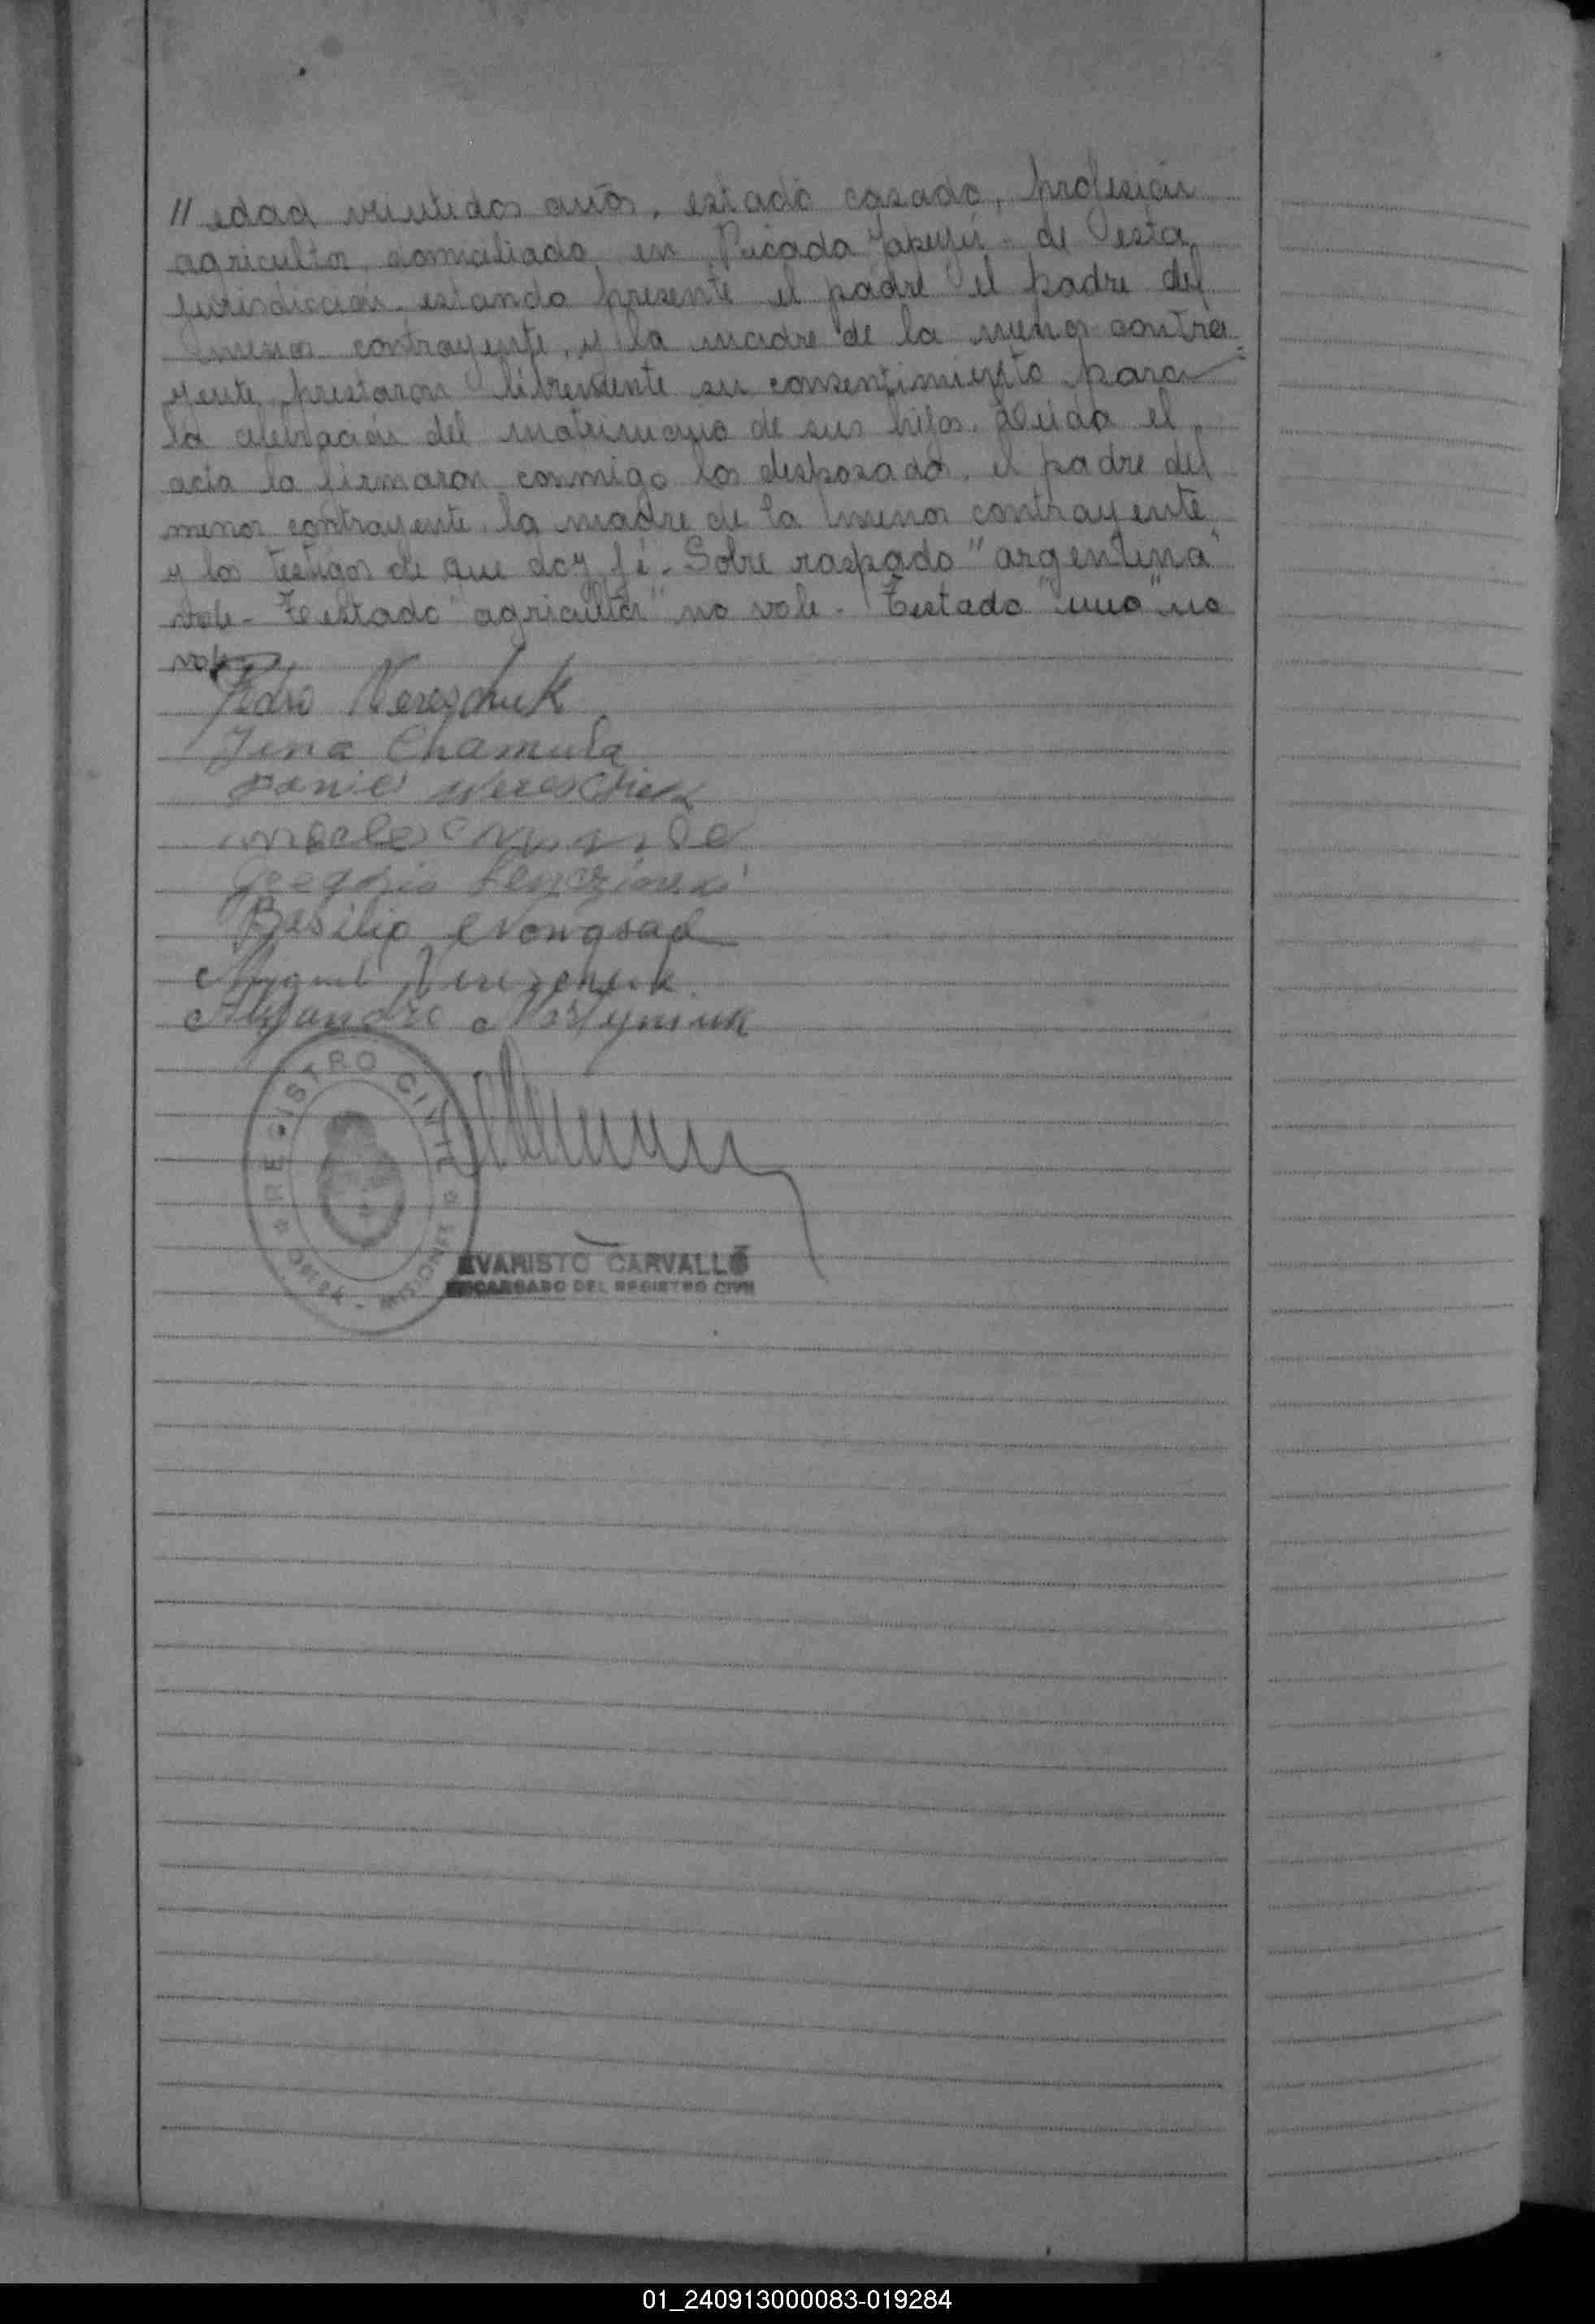 // edad veintidos años, estado casado, profesión
agricultor, domiciliado en Picada Yapeyú - de esta
jurisdicción. estando presente el padre el padre del
menor contrayente, y la madre de la menor contra-
yente prestaron libremente su consentimiento para
la celebración del matrimonio de sus hijos. Leída el
acta la firmaron conmigo los desposados, el padre del
menor contrayente, la madre de la menor contrayente
y los testigos de que doy fé. Sobre raspado "argentina"
vale - Testado "agricultor" no vale - Testado "uno" no
vale
Pedro Wereschuk
Jena Chamula
Wereschuk
Gregorio
Basilio
Miguel
Alejandro Martyniuk
REGISTRO CIVIL
OBERÁ - MISIONES
EVARISTO CARVALLO
ENCARGADO DEL REGISTRO CIVIL
01_240913000083-019284